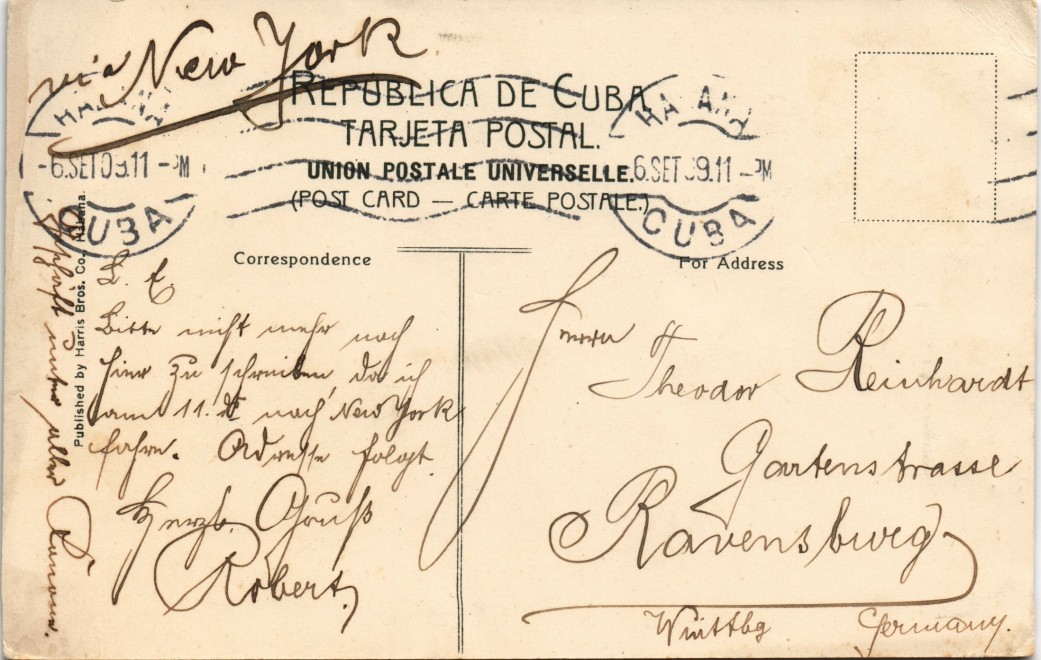 via New York
REPÚBLICA DE CUBA
TARJETA POSTAL.
UNION POSTALE UNIVERSELLE.
(POST CARD — CARTE POSTALE.)
HABANA
-6.SET 09.11 -PM
CUBA
HABANA
6.SET 09.11 -PM
CUBA
Correspondence
For Address
Published by Harris Bros. Co., Habana.
L. E.
Bitte nicht mehr nach
hier zu schreiben, da ich
am 11. d nach New York
fahre. Adresse folgt.
Herzl. Gruß
Robert
unter aller
Herrn
Theodor Reinhardt
Gartenstrasse
Ravensburg
Württbg Germany.